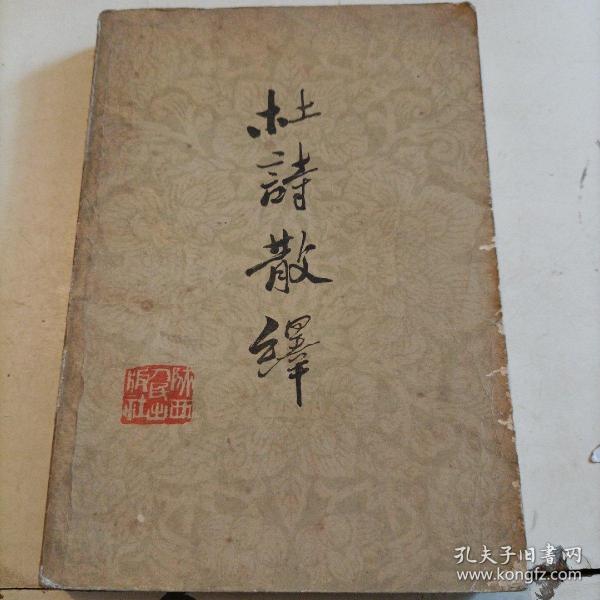 杜詩散繹
陕西人民出版社
孔夫子旧書网
www.kongfz.com